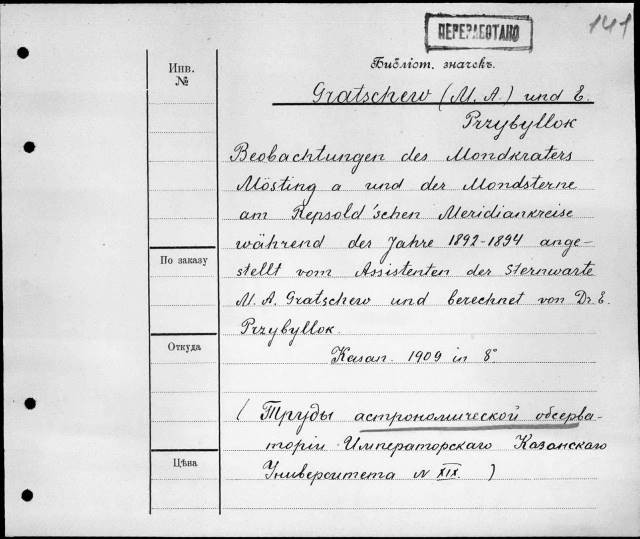 141
ПЕРЕРАБОТАНО
Библіот. значекъ.
Инв.
№
Gratschew (M. A.) und E.
Przybyllok
Beobachtungen des Mondkraters
Mösting a und der Mondsterne
am Repsold'schen Meridiankreise
während der Jahre 1892-1894 ange-
stellt vom Assistenten der Sternwarte
M. A. Gratschew und berechnet von Dr. E.
Przybyllok.
По заказу
Откуда
Kasan. 1909 in 8°
(Труды астрономической обсерва-
торіи Императорскаго Казанскаго
Университета N XIX.)
Цѣна